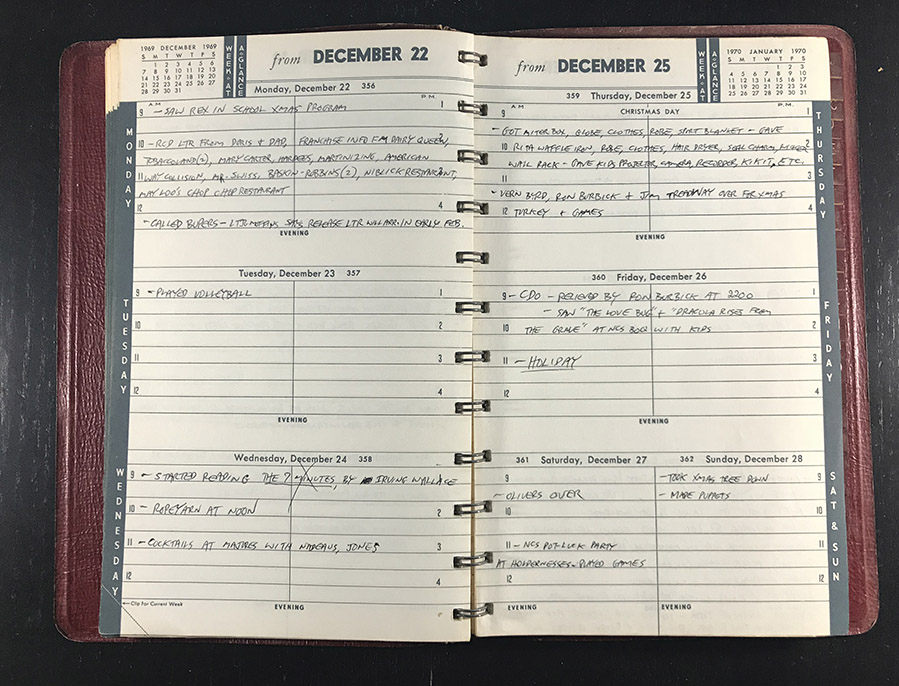 1969 DECEMBER 1969
S M T W T F S
1 2 3 4 5 6
7 8 9 10 11 12 13
14 15 16 17 18 19 20
21 22 23 24 25 26 27
28 29 30 31
WEEK-AT
A-GLANCE
from DECEMBER 22
Monday, December 22 356
MONDAY
A.M. P.M.
9 - SAW REX IN SCHOOL XMAS PROGRAM 1
10 - RCD LTR FROM DORIS & DAD, FRANCHISE INFO FM DAIRY QUEEN, 2
TOBACCOLAND(2), MARY CARTER, HARDEES, MARTINIZING, AMERICAN
11 WAY COLLISION, MR. SWISS, BASKIN-ROBBINS(2), NIBLICK RESTAURANT, 3
MAY LOO'S CHOP CHOP RESTAURANT
12 4
- CALLED BUPERS - LTJG SAYS RELEASE LTR WILL ARR. IN EARLY FEB.
EVENING
Tuesday, December 23 357
TUESDAY
9 - PLAYED VOLLEYBALL 1
10 2
11 3
12 4
EVENING
Wednesday, December 24 358
WEDNESDAY
9 - STARTED READING THE 7 MINUTES, BY IRVING WALLACE
10 - ROPEYARN AT NOON 2
11 - COCKTAILS AT MAJORES WITH NADEAUS, JONES 3
12 4
←Clip For Current Week
EVENING
from DECEMBER 25
WEEK-AT
A-GLANCE
1970 JANUARY 1970
S M T W T F S
1 2 3
4 5 6 7 8 9 10
11 12 13 14 15 16 17
18 19 20 21 22 23 24
25 26 27 28 29 30 31
359 Thursday, December 25
THURSDAY
A.M. P.M.
9 CHRISTMAS DAY 1
- GOT MITER BOX, GLOBE, CLOTHES, ROBE, SPORT BLANKET - GAVE
10 RITA WAFFLE IRON, ROBE, CLOTHES, HAIR DRYER, SEAL CHARM, 2
WALL RACK - GAVE KIDS PROJECTOR, CAMERA, RECORDER, ETC.
11 3
- VERN BYRD, RON BURBICK & JIM TREADWAY OVER FR XMAS
12 TURKEY & GAMES 4
EVENING
360 Friday, December 26
FRIDAY
9 - CDO - RELIEVED BY RON BURBICK AT 2200 1
- SAW "THE LOVE BUG" & "DRACULA RISES FROM
10 THE GRAVE" AT NCS BOQ WITH KIDS 2
11 - HOLIDAY 3
12 4
EVENING
361 Saturday, December 27
9
- OLIVERS OVER
10
11 - NCS POT-LUCK PARTY
AT HOLDERNESSES - PLAYED GAMES
12
EVENING
362 Sunday, December 28
SAT & SUN
- TOOK XMAS TREE DOWN 9
- MADE PUPPETS
10
11
12
EVENING